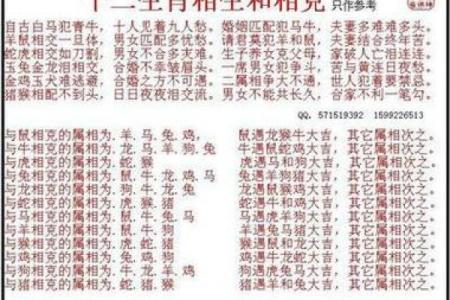 十二生肖相生和相克 只作参考
自古白马犯青牛, 十人见着九人愁, 婚姻匹配犯马牛, 夫妻多难难多头。
羊鼠相交一旦体, 男女匹配多忧愁, 请君莫犯羊和鼠, 夫妻结合终年苦。
蛇虎相交如刀割, 男女不合多争, 生一养女克父母, 家破人亡泪洼洼。
玉兔金龙相相交, 合婚不幸皱眉头, 一旦男女成婚配, 苦与黄连日日愁。
金鸡玉犬难逃避, 合婚之方不可遇, 二属相争大不通, 世人犯着要禁忌。
猪猴相配不到头, 日日夜夜泪交流, 男女不能共长久, 合家不利一笔勾。
QQ. 571519392 1599226513
与鼠相克的属相为.羊.马.兔.鸡, 鼠遇龙猴牛大吉, 其它属相次之。
与牛相克的属相为.龙.马.羊.狗.兔 牛遇鼠蛇鸡大吉, 其它属相次之。
与虎相克的属相为:蛇.猴 虎遇马和狗大吉, 其它属相次之。
与兔相克的属相为:鼠.牛.龙.鸡.马 兔遇羊狗猪大吉, 其它属相次之。
与龙相克的属相为:牛.龙.兔.狗 龙遇鼠猴鸡大吉, 其它属相次之。
与蛇相克的属相为:虎.猴.猪 蛇遇牛和鸡大吉, 其它属相次之。
与马相克的属相为:鼠.牛.兔.马 马遇虎羊狗大吉, 其它属相次之。
与羊相克的属相为:鼠.牛.狗 羊遇兔马猪大吉, 其它属相次之。
与猴相克的属相为:虎.蛇.猪 猴遇鼠和龙大吉, 其它属相次之。
与鸡相克的属相为:鸡.兔.狗 鸡遇牛龙蛇大吉, 其它属相次之。
与狗相克的属相为:牛.龙.羊.鸡 狗遇虎兔马大吉, 其它属相次之。
与猪相克的属相为:猪.猴.蛇 猪遇羊和兔大吉, 其它属相次之。